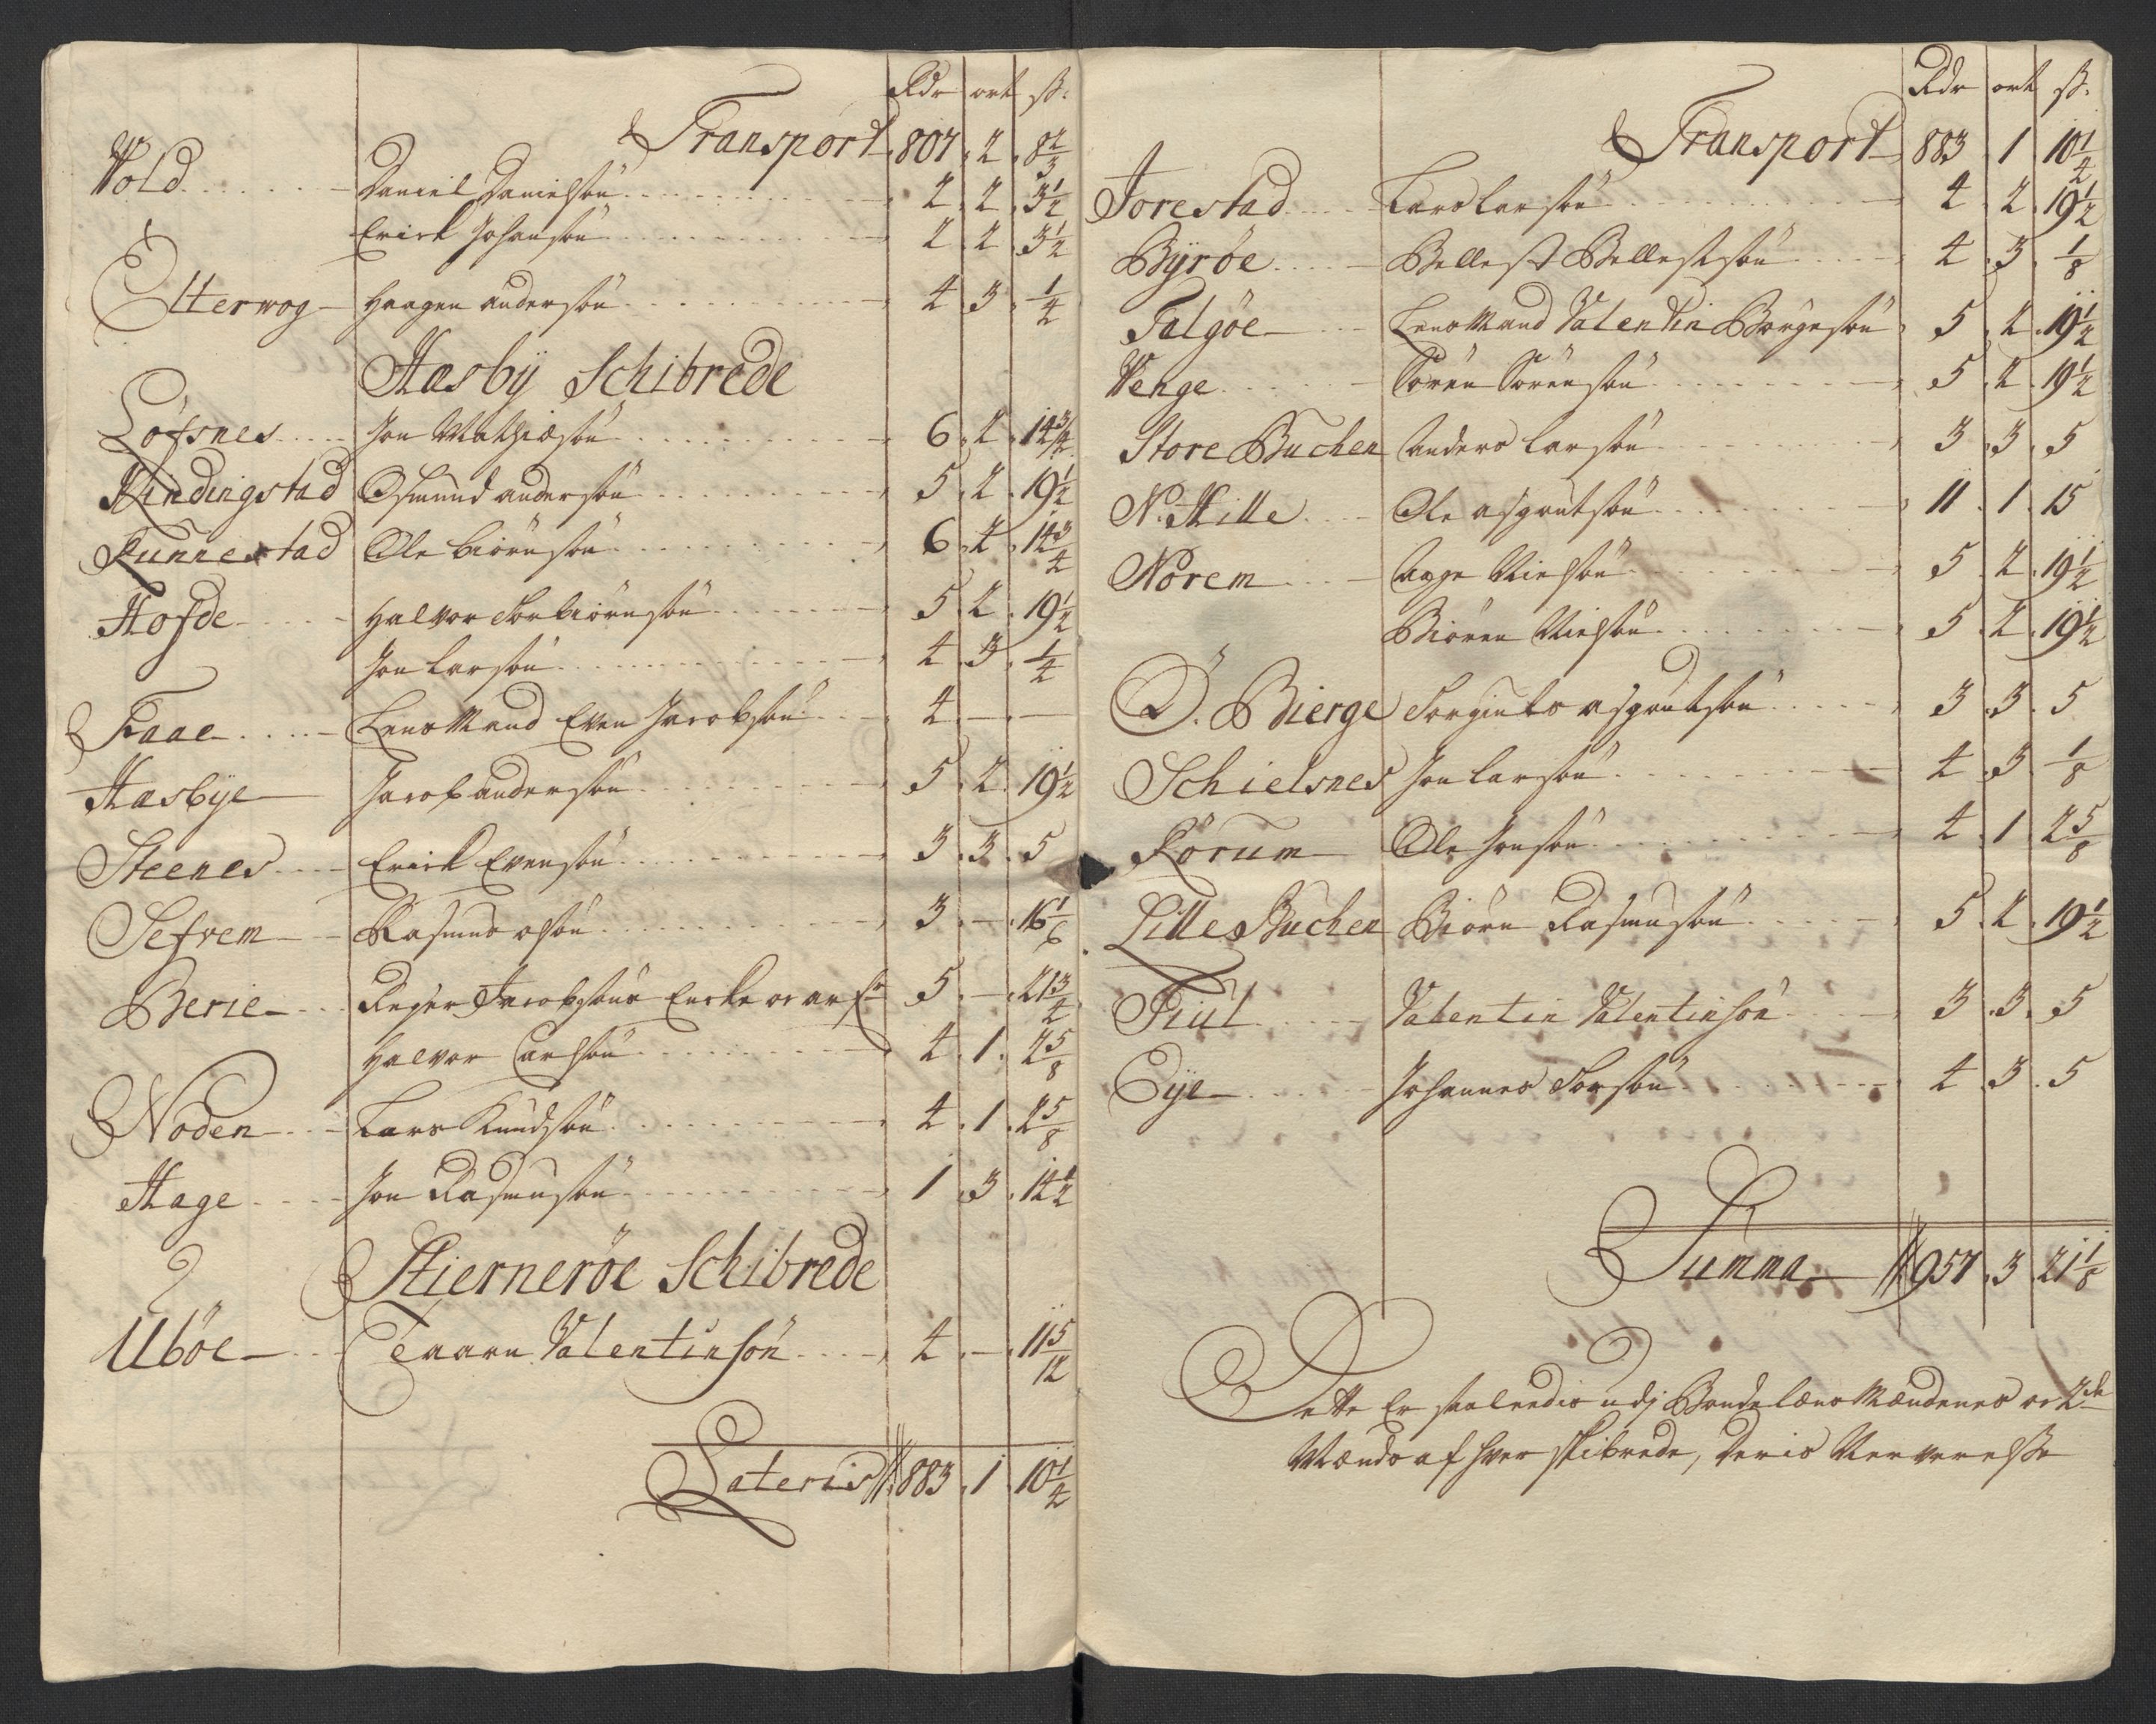 Rdr ort ß.
Transport 807 . 2 . 8 2/3
Vold Daniel Danielsøn 2 . 2 . 3 1/2
Erich Johansøn 2 . 2 . 3 1/2
Etterwog Haagen Andersøn 4 . 3 . 1/4
Hæsbÿ Schibrede
Løfsnes Jon Mathiæsøn 6 . 2 . 14 3/4
Kindingstad Osmund Andersøn 5 . 2 . 19 1/2
Runnestad Ole Biørnsøn 6 . 2 . 14 3/4
Hofde Halvor Torbiørnsøn 5 . 2 . 19 1/2
Jon Larsøn 4 . 3 . 1/4
Faae Lensmand Even Jacobsøn 4 . — . —
Hæsbÿe Jacob Andersøn 5 . 2 . 19 1/2
Steenes Erich Evensøn 3 . 3 . 5
Sefrem Rasmus olsøn 3 . — . 16 1/6
Berie Reÿer Jacobsøns Encke oc arfr 5 . — . 21 3/4
Halvor Carlsøn 4 . 1 . 2 5/8
Noden Lars Knudsøn 4 . 1 . 2 5/8
Hage Jon Rasmusøn 1 . 3 . 14 1/2
Hiernerøe Schibrede
Ubøe Enaaru Valentinsøn 4 . — . 11 5/12
Lateris 883 . 1 . 10 1/4
Rdr ort ß.
Transport 883 1 10 1/4
Jorestad Lars Larsøn 4 . 2 . 19 1/2
Bÿrøe Bellest Bellestsøn 4 . 3 . 1/8
Talgøe LensMand Valentin Børgesøn 5 . 2 . 19 1/2
Venge Søren Sørensøn 5 . 2 . 19 1/2
Store Buchen Anders Larsøn 3 . 3 . 5
N. Hille Ole asgoutsøn 11 . 1 . 15
Norem Aage Nielsøn 5 . 2 . 19 1/2
Biøren Nielsøn 5 . 2 . 19 1/2
Ö. Bierge Torgiuls asgoutsøn 3 . 3 . 5
Schielsnes Jon Larsøn 4 . 3 . 1/8
Rørum Ole Jonsøn 4 . 1 . 2 5/8
Lille Buchen Biørn Rasmusøn 5 . 2 . 19 1/2
Fiül Valentin Valentinsøn 3 . 3 . 5
Eÿe Johannes Torsøn 4 . 3 . 5
Summa 957 . 3 . 21 1/8
Dette Er saaledis udj BondelænsMændenes oc 2de
Mænds af hver skibrede, deris Nerverelsse